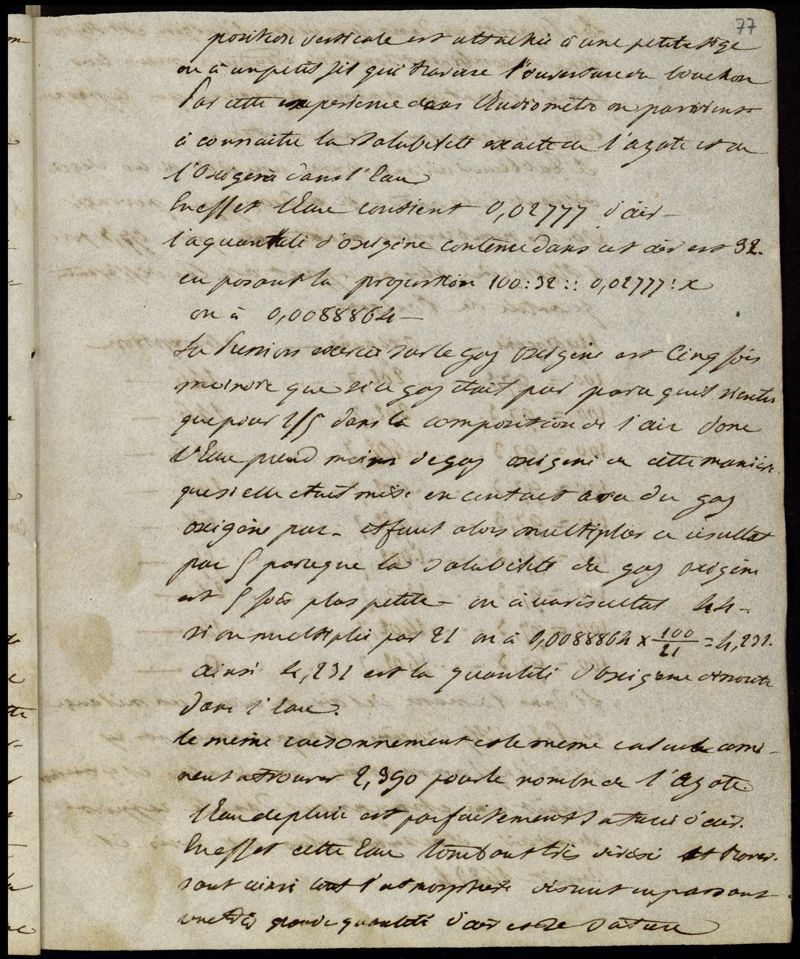 77
position verticale est attachée à une petite tige
ou à un petit fil qui traverse l'ouverture du bouchon
Par cette expérience dans l'Eudiomètre on parvient
à connaitre la solubilité exacte de l'azote et de
l'Oxigène dans l'Eau
En effet l'Eau contient 0,02777 d'air
la quantité d'oxigène contenue dans cet air est 32.
en posant la proportion 100:32::0,02777:x
on a 0,0088864
La Pression exercée sur le gaz oxigène est Cinq fois
moindre que si ce gaz était pur parce qu'il n'entre
que pour 1/5 dans la composition de l'air donc
l'Eau prend moins de gaz oxigène de cette manière
que si elle était mise en contact avec du gaz
oxigène pur. Il faut alors multiplier ce résultat
par 5 parceque la solubilité du gaz oxigène
est 5 fois plus petite on a un résultat 44
si on multiplie par 21 on a 0,0088864 x 100/21 = 4,231.
ainsi 4,231 est la quantité d'Oxigène dissoute
dans l'Eau.
le même raisonnement et le même calcul amè-
nent a trouver 2,390 pour le nombre de l'Azote
l'Eau de pluie est parfaitement saturée d'air.
En effet cette Eau tombant très divisée et traver-
sant ainsi tout l'atmosphère dissout en passant
une très grande quantité d'air et se sature